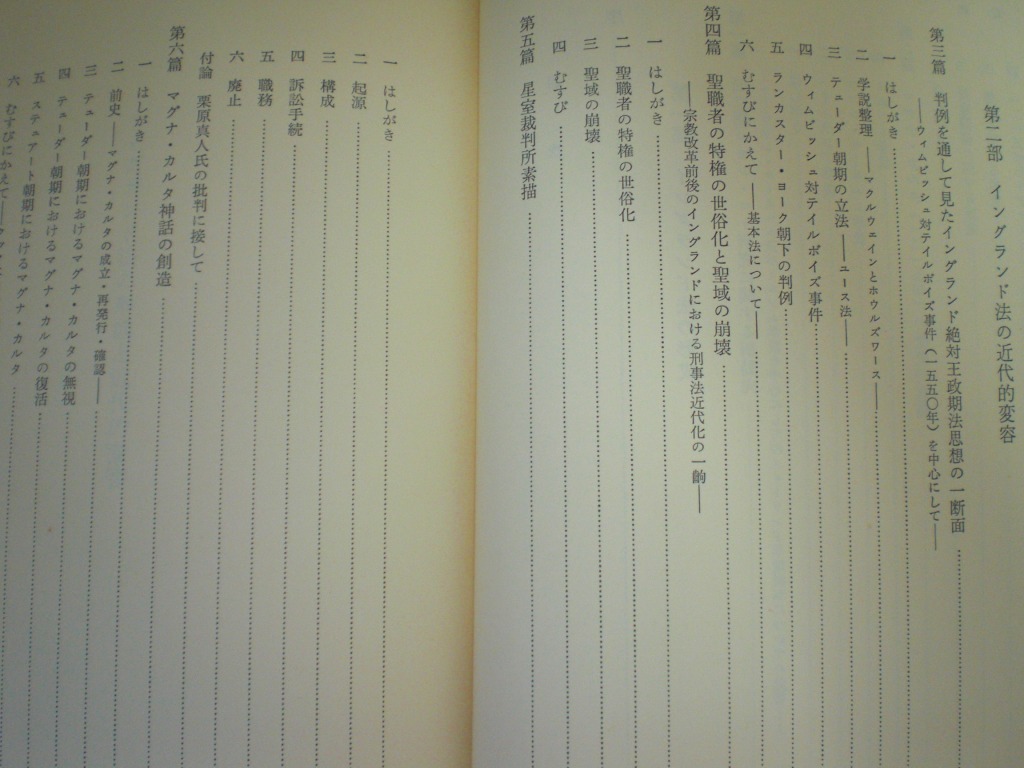 第二部 イングランド法の近代的変容
第三篇 判例を通して見たイングランド絶対王政期法思想の一断面
――ウィムビッシュ対テイルボイズ事件(一五五〇年)を中心にして――
一 はしがき
二 学説整理――マクルウェインとホウルズワース――
三 テューダー朝期の立法――ユース法――
四 ウィムビッシュ対テイルボイズ事件
五 ランカスター・ヨーク朝下の判例
六 むすびにかえて――基本法について――
第四篇 聖職者の特権の世俗化と聖域の崩壊
――宗教改革前後のイングランドにおける刑事法近代化の一齣――
一 はしがき
二 聖職者の特権の世俗化
三 聖域の崩壊
四 むすび
第五篇 星室裁判所素描
一 はしがき
二 起源
三 構成
四 訴訟手続
五 職務
六 廃止
付論 栗原真人氏の批判に接して
第六篇 マグナ・カルタ神話の創造
一 はしがき
二 前史――マグナ・カルタの成立・再発行・確認――
三 テューダー朝期におけるマグナ・カルタの無視
四 テューダー朝期におけるマグナ・カルタの復活
五 ステュアート朝期におけるマグナ・カルタ
六 むすびにかえて――